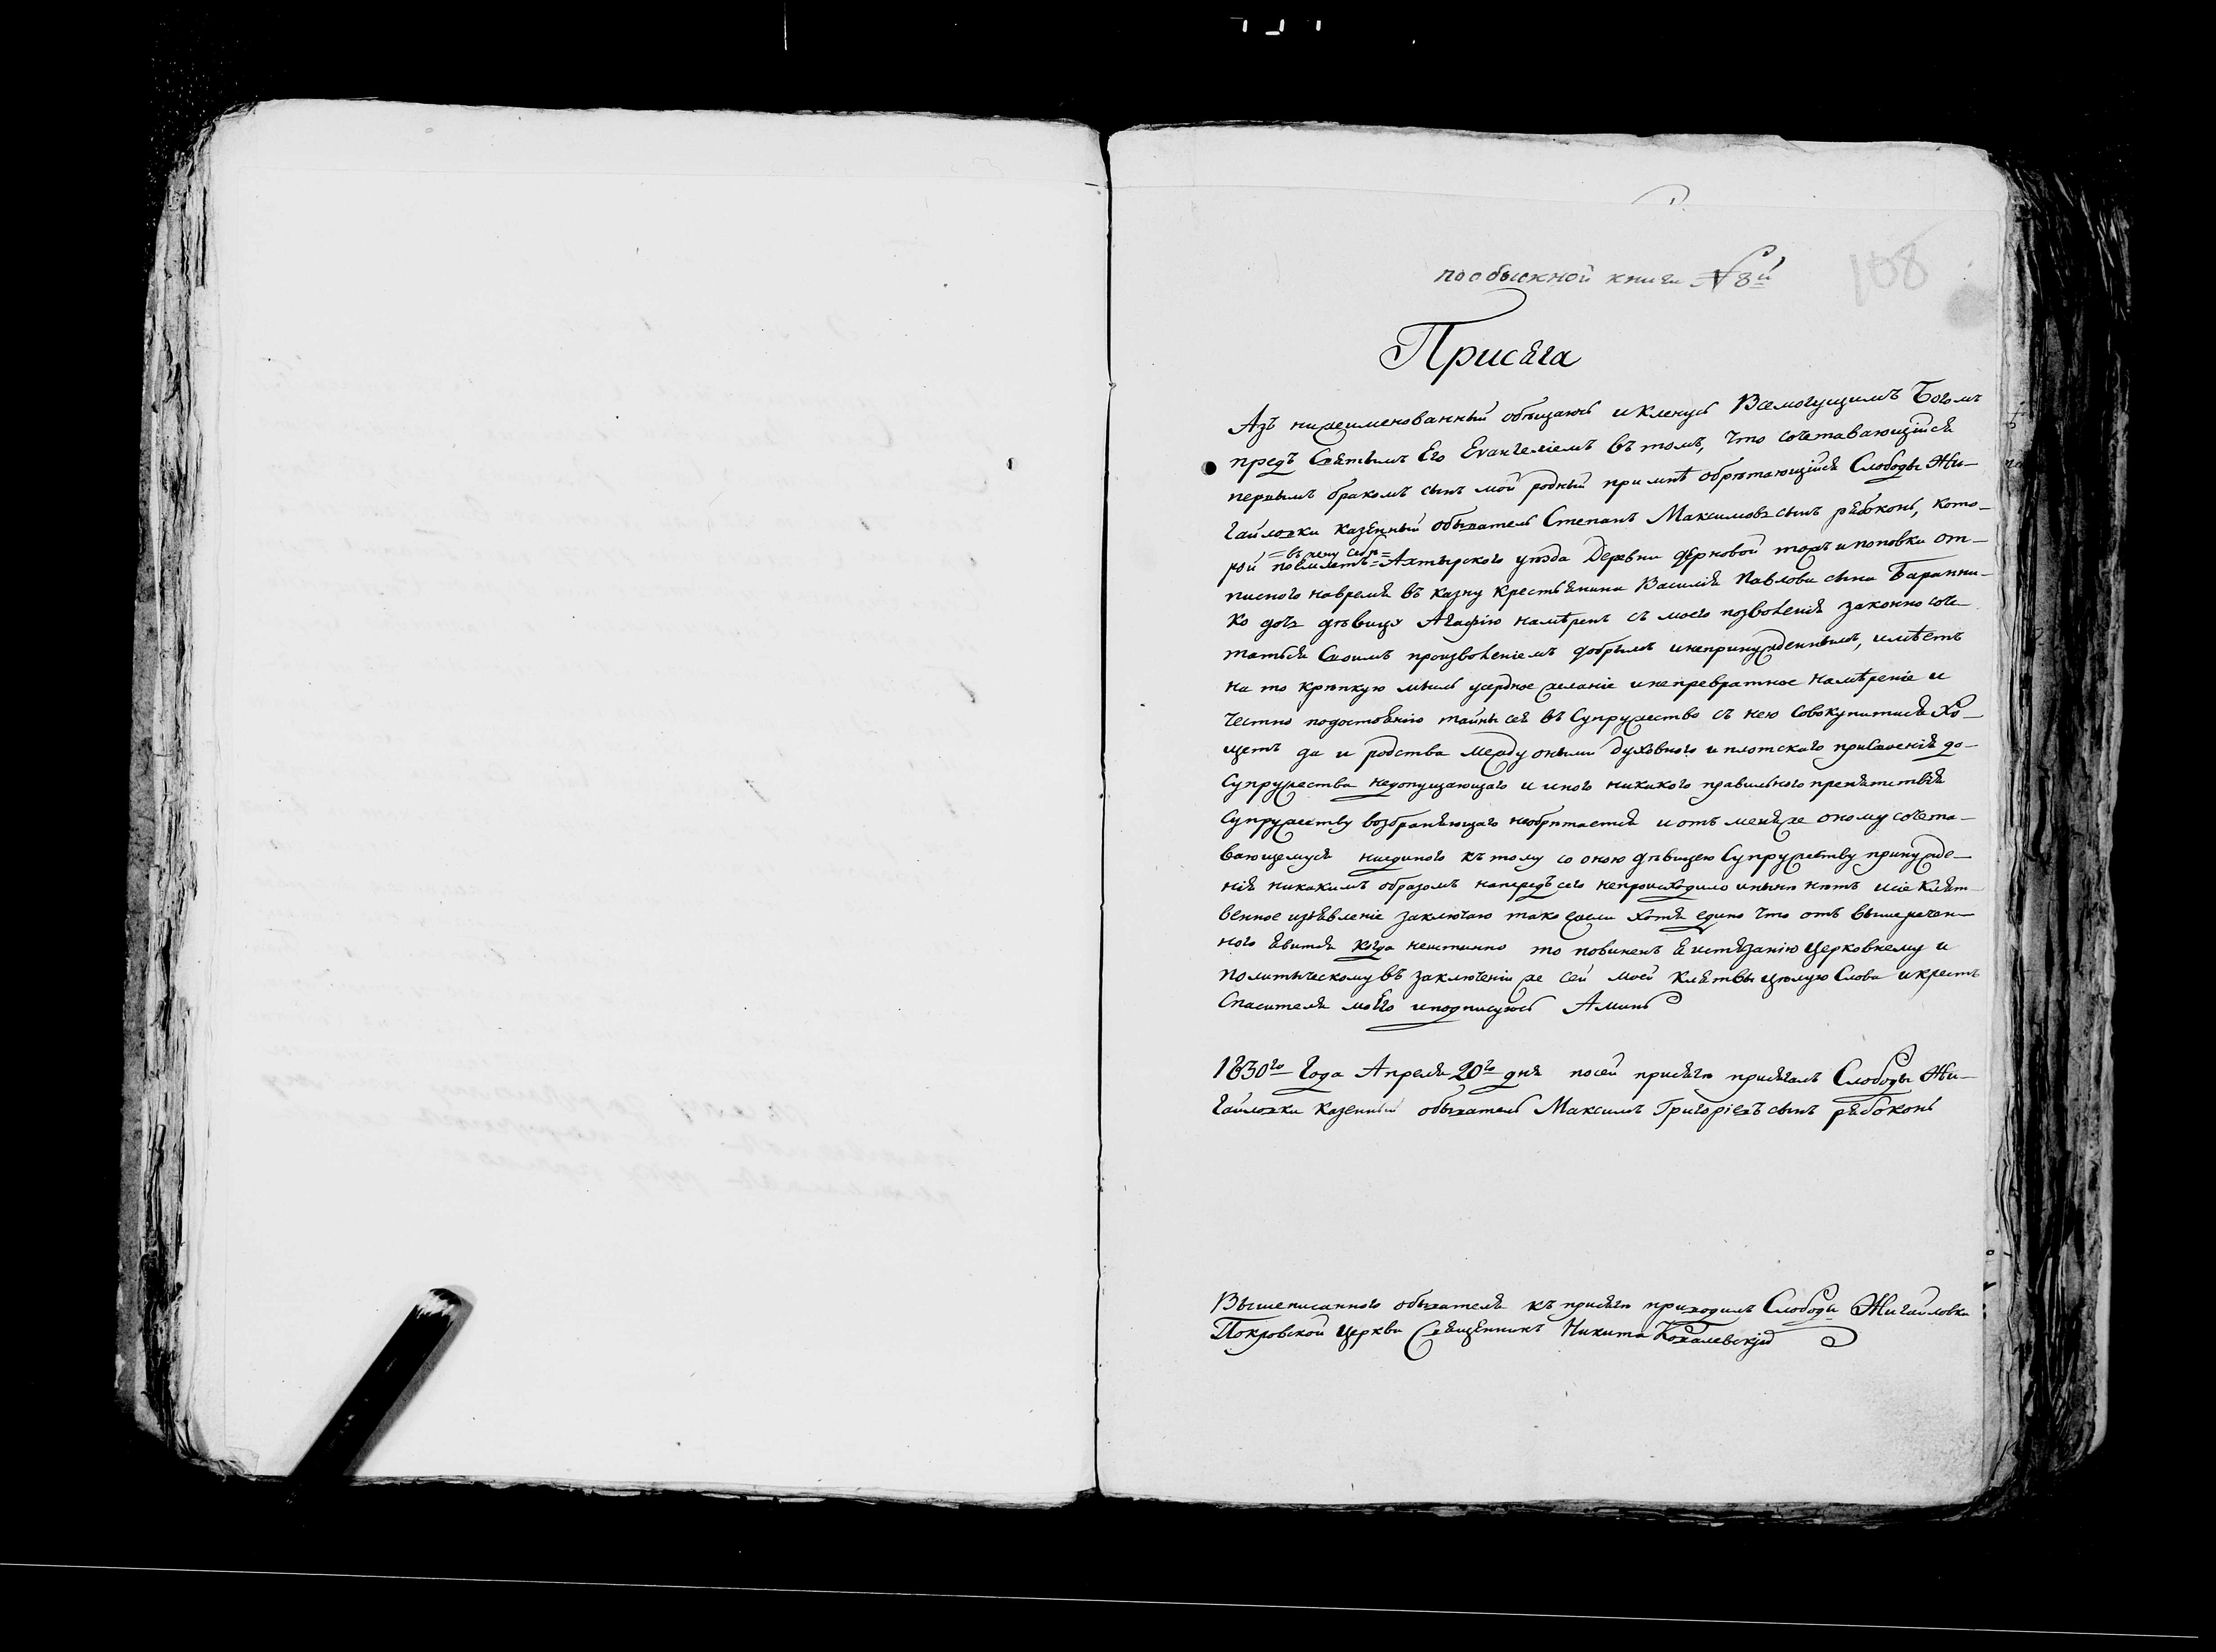 по обыскной книги № 8й
108
Присяга
Азъ нижеименованный обѣщаюсь и кленусь Всемогущимъ Богомъ
предъ Святымъ Его Евангелiемъ въ томъ, что сочетавающiйся
первымъ бракомъ сынъ мой родный при мнѣ обрѣтающiйся Слободы Жи-
гайловки казенный обыватель Степанъ Максимовъ сынъ рябоконь, кото-
=въ жену себѣ=
рой поемлетъ=Ахтырского уѣзда Деревни
и поповки от-
писного на время въ казну крестьянина Василiя Павлова сына Баранни-
ко дочь дѣвицу Агафiю намѣренъ съ моего позволенiя законно соче-
таться Своимъ произволенiемъ добрымъ и непринужденнымъ, имѣетъ
на то крѣпкую мысль усердное желанiе и непревратное намѣренiе и
честно по достоянiю тайны сея въ Супружество съ нею совокупитися Хо-
щетъ да и родства между оными духовного и плотскаго присвоенiя до-
Супружества недопущающаго и иного никакого правильного препятствiя
Супружеству возбраняющаго необрѣтается и отъ меня же оному сочета-
вающемуся ниединого къ тому со оною дѣвицею Супружеству принужде-
нiя никакимъ образомъ напередъ сего непроисходило и нынѣ нѣтъ и сiе Клят-
венное изъявленiе заключаю тако ежели хотя едино что отъ вышеречен-
ного явится когда неистинно то повиненъ я истязанiю церковнему и
политическому въ заключенiи же сей моей клятвы цѣлую Слова и крестъ
Спасителя моего и подписуюсь Аминь
1830го Года Апреля 20го дня по сей присягѣ присягалъ Слободы Жи-
гайловки казенный обыватель Максимъ Григорiевъ сынъ рябоконь
Вышеписанного обывателя къ присягѣ приводилъ Слободы Жигайловки
Покровской церкви Священникъ Никита Ковалевскiй